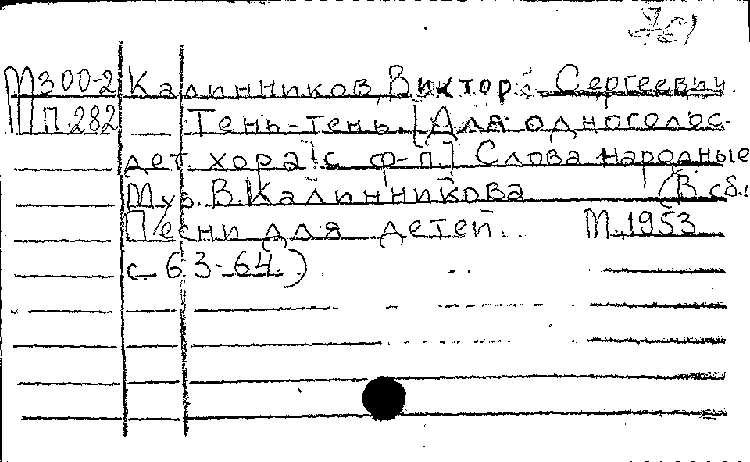 761
М300-2 Калинников, Виктор Сергеевич.
П 282 Тень-тень. [Для одноголос.
дет. хора [с ф-п.] Слова народные
Муз. В. Калинникова (В сб.:
Песни для детей. М., 1953
с 63-64.)